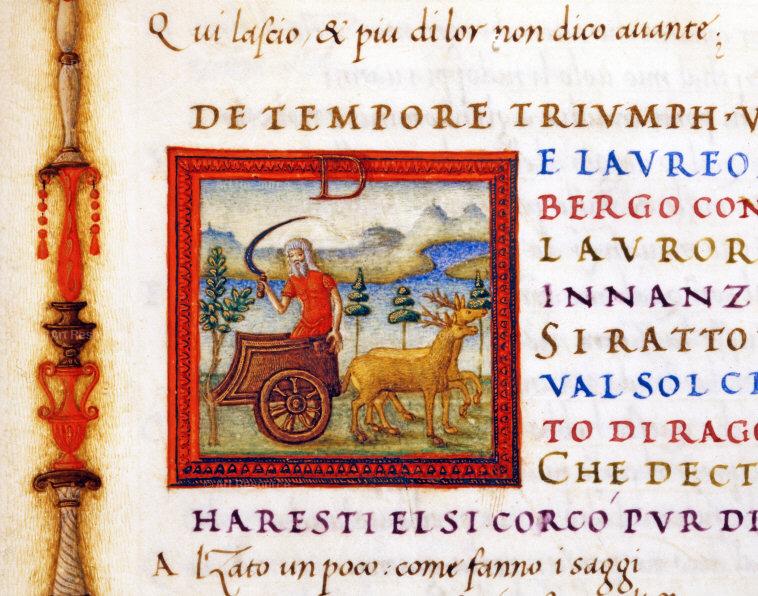 Qui lascio, & piu di lor non dico avante:
DE TEMPORE TRIVMPH· V
D
E LAVREO
BERGO CON
LAVROR
INNANZ
SI RATTO
VAL SOL CI
TO DI RAGG
CHE DECT
HARESTI EI SI CORCO PVR DI
Alzato un poco: come fanno i saggi